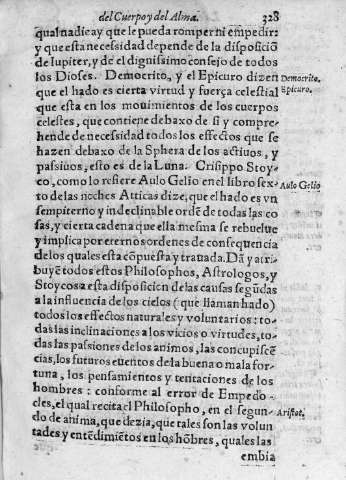 del Cuerpo y del Alma. 328
qual nadie ay que le pueda romper ni empedir:
y que esta necesidad depende de la disposiciõ
de Iupiter, y de el dignissimo consejo de todos
los Dioses. Democrito, y el Epicuro dizen
Democrito.
que el hado es cierta virtud y fuerça celestial
Epicuro.
que esta en los mouimientos de los cuerpos
celestes, que contiene debaxo de si y compre-
hende de necessidad todos los effectos que se
hazen debaxo de la Sphera de los actiuos, y
passiuos, esto es de la Luna. Crisippo Stoy-
co, como lo refiere Aulo Gelio en el libro sex-
Aulo Gelio
to de las noches Atticas dize, que el hado es vn
sempiterno y indeclinable ordẽ de todas las co
sas, y cierta cadena que ella mesma se rebuelue
y implica por eternos ordenes de consequencia
de los quales esta cõpuesta y trauada. Dã y atri
buyẽ todos estos Philosophos, Astrologos, y
Stoycos a esta disposicion de las causas segũdas
a la influencia de los cielos (que llaman hado)
todos los effectos naturales y voluntarios: to-
das las inclinaciones a los vicios o virtudes, to-
das las passiones de los animos, las concupiscẽ
cias, los futuros euentos de la buena o mala for-
tuna, los pensamientos y tentaciones de los
hombres: conforme al error de Empedo-
cles, el qual recita el Philosopho, en el segun-
Aristot.
do de anima, que dezia, que tales son las volun
tades y entẽdimiẽtos en los hõbres, quales las
embia